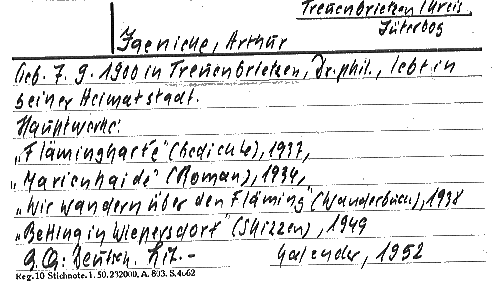 Treuenbrietzen (Kreis
Jüterbog
Igeniche, Arthur
Geb. 7. 9. 1900 in Treuenbrietzen, Dr. phil., lebt in
seiner Heimatstadt.
Hauptwerke:
„Flämingharfe" (Gedichte), 1937,
„Marienhaide" (Roman), 1934,
„Wir wandern über den Fläming" (Wanderbuch), 1938
„Bettina in Wiepersdorf" (Skizzen), 1949
Deutsch. Lit.- Kalender, 1952
Reg. 10 Stichnote. 1. 50. 232000. A. 803. S. 4062